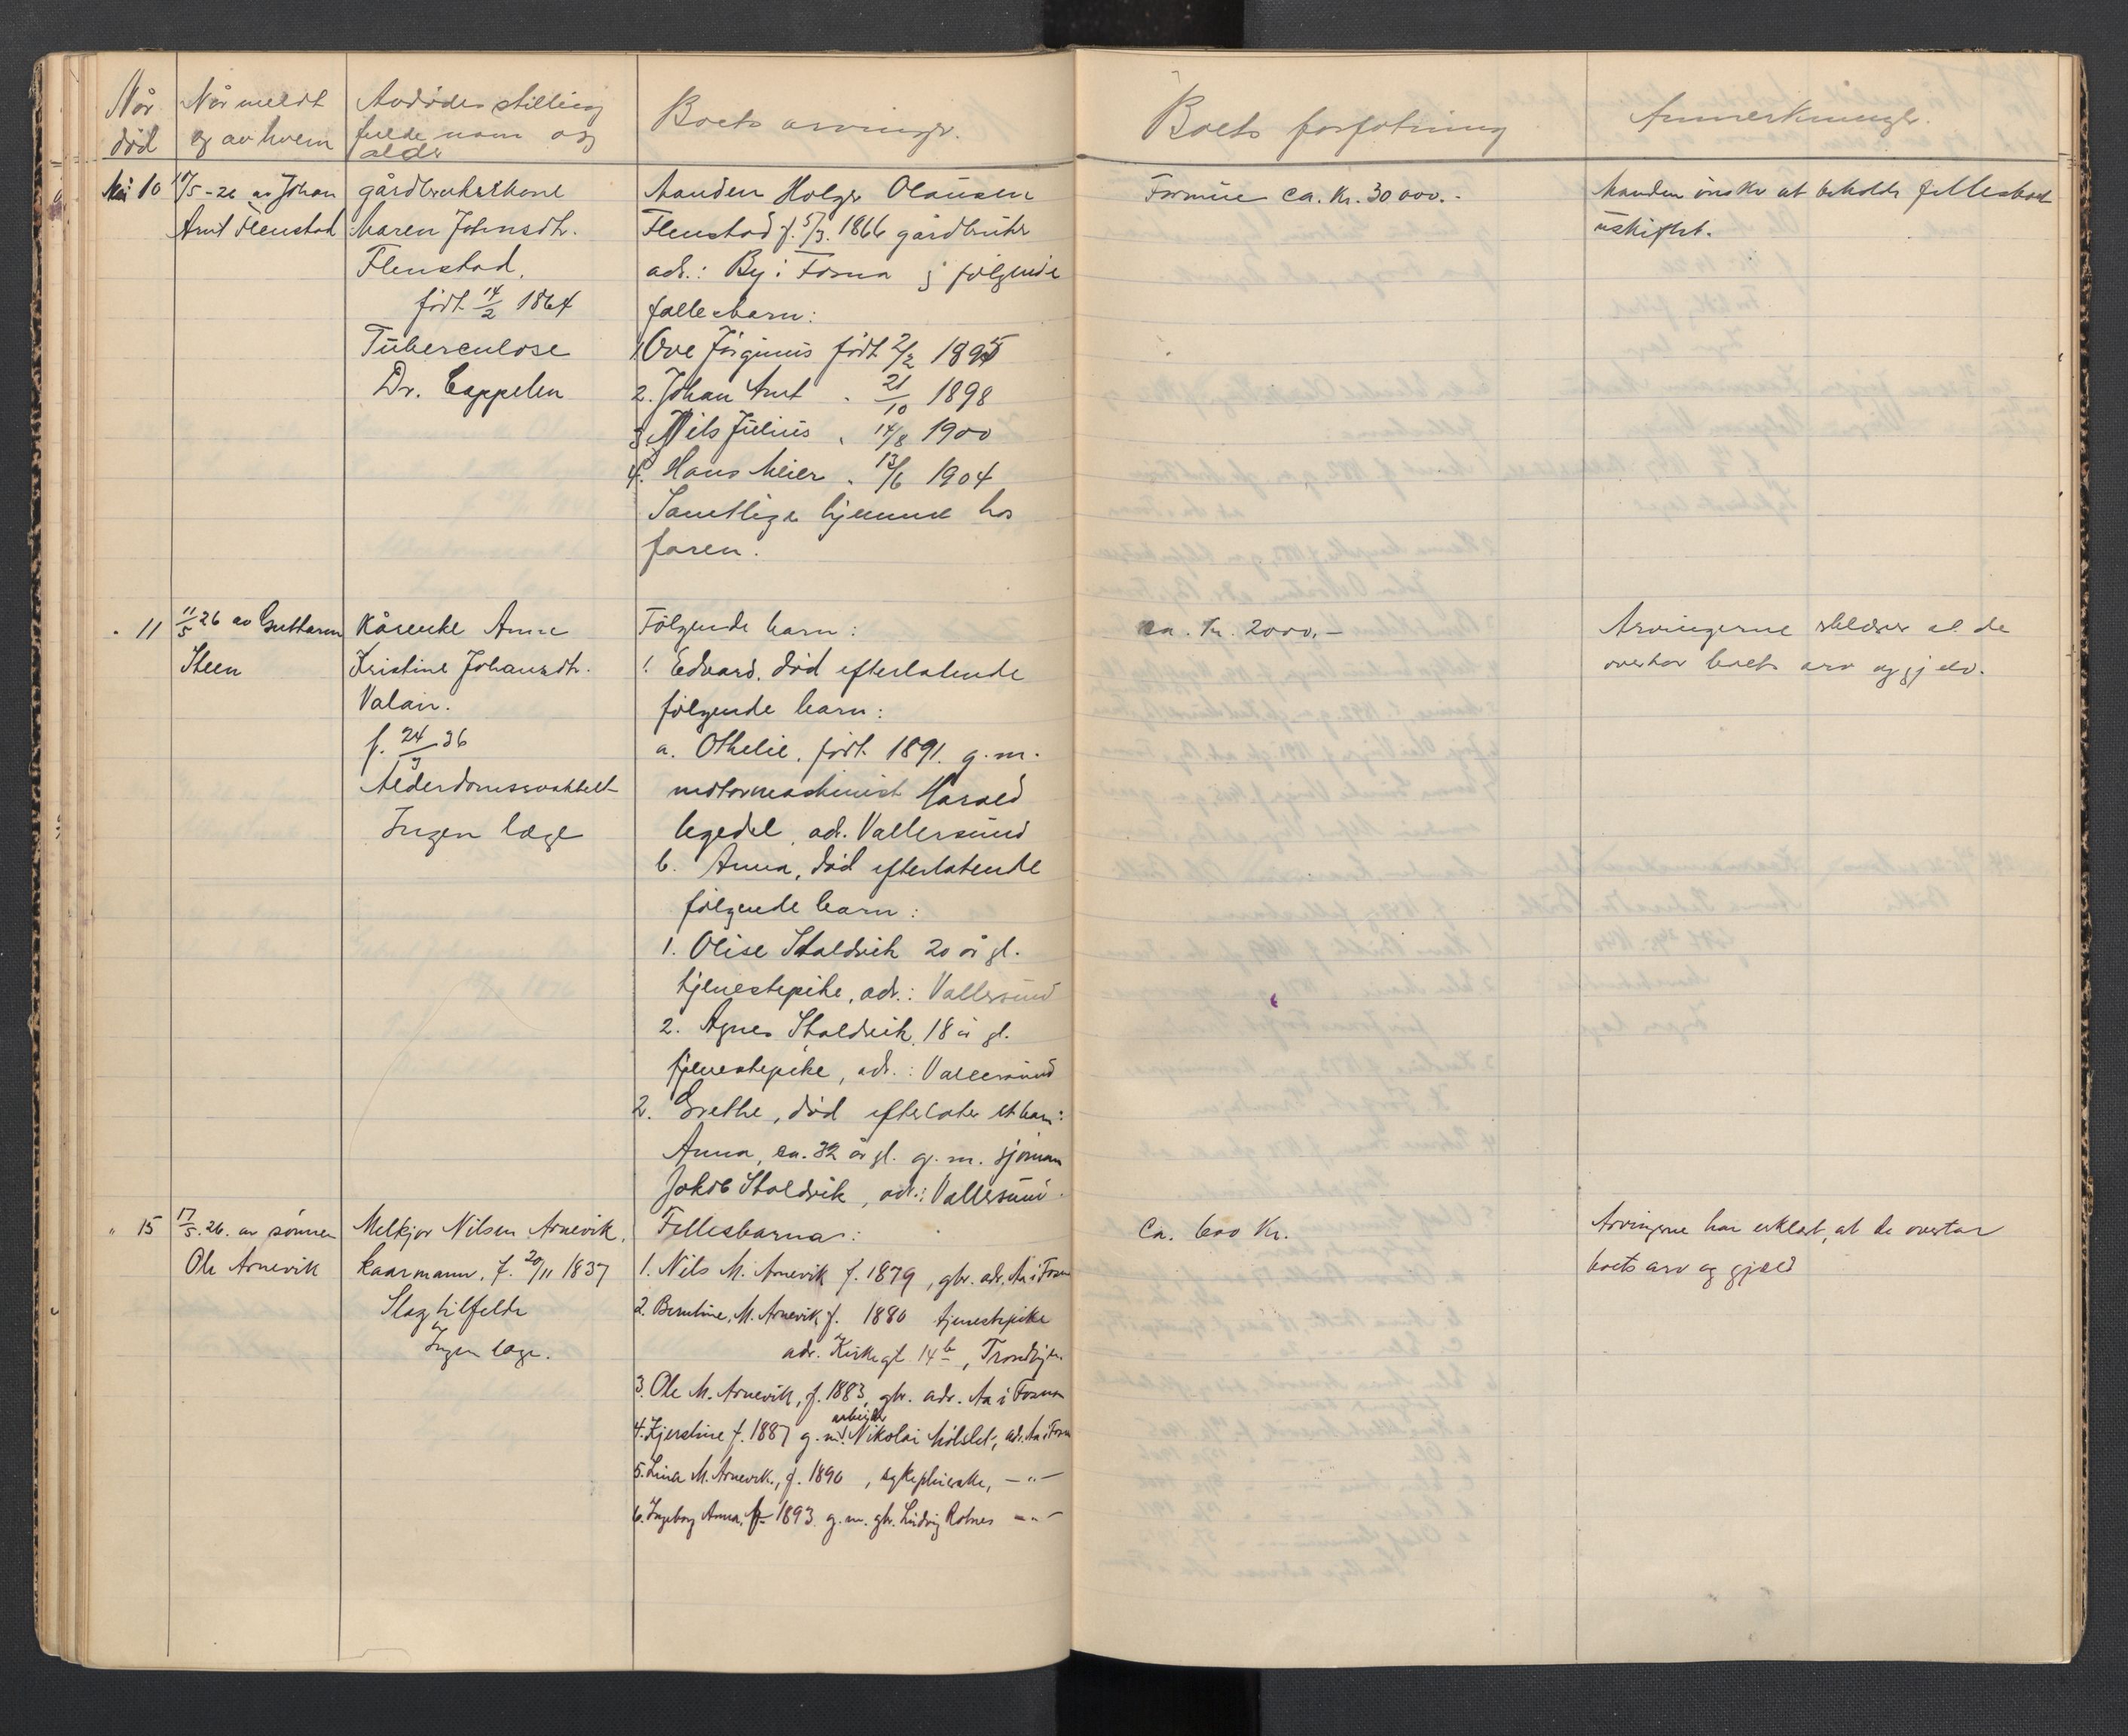 Når død
Når meldt og av hvem
Avdødes stilling fulde navn og alder
Boets arvinger.
Boets forfatning
Anmerkninger.
Mai 10
5-26 av Johan
Arnt Flenstad
gårdbrukerkone
Maren Johnsdtr.
Flenstad.
født 14/2 1864
Tuberculose
Dr. Cappelen
Manden Holger Olausen
Flenstad f. 5/3. 1866 gårdbruker
adr.: By i Fosna & følgende
fællesbarn:
1. Ove Jørginus født 2/2 1895
2. Johan Arnt " 21/10 1898
3. Nils Julius " 14/8 1900
4. Hans Meier " 13/6 1904
Samtlige hjemme hos
faren.
Formue ca. Kr. 30 000.-
Manden ønsker at beholde fellesboet
uskiftet.
" 11
11/5 26 av Guttorm
Steen
Kårenke Anne
Kristine Johansdtr.
Valan.
f. 24/9 36
Alderdomssvakhet
Ingen læge
Følgende barn:
1. Edvard. død efterlatende
følgende barn:
a. Othelie. født 1891. g.m.
motormaskinist Harald
adr. Vallersund
b. Anna, død efterlatende
følgende barn:
1. Olise Stoldvik 20 år gl.
tjenestepike, adr.: Vallersund
2. Agnes Stoldvik, 18 år gl.
tjenestepike, adr.: Vallersund
2. Grethe, død efterlater et barn:
Anna, ca. 32 år gl. g. m. sjømann
Jakob Stoldvik, adr.: Vallersund.
ca. Kr. 2000.-
Arvingerne erklærer at de
overtar boets arv og gjeld.
" 15
17/5. 26. av sønnen
Ole Arnevik
Melkjor Nilsen Arnevik.
Kaarmann. f. 20/11 1837
Slagtilfelde
Ingen læge.
Fellesbarna:
1. Nils M. Arnevik f. 1879, gbr. adr. Aa i Fosna
2. Berntine, M. Arnevik f. 1880 tjenestepike
adr. Kirkegt. 14b, Trondhjem.
3. Ole M. Arnevik, f. 1883, gbr. adr. Aa i Fosna
4. Kjerstine f. 1887 g. m. arbeider Nikolai Mølslet, adr. Aa i Fosna
5. Lina M. Arnevik, f. 1890, sykepleierske, — " —
6. Ingeborg Anna, f. 1893. g. m. gbr. Ludvig Rotnes — " —
Ca. 600 Kr.
Arvingerne har erklært, at de overtar
boets arv og gjæld